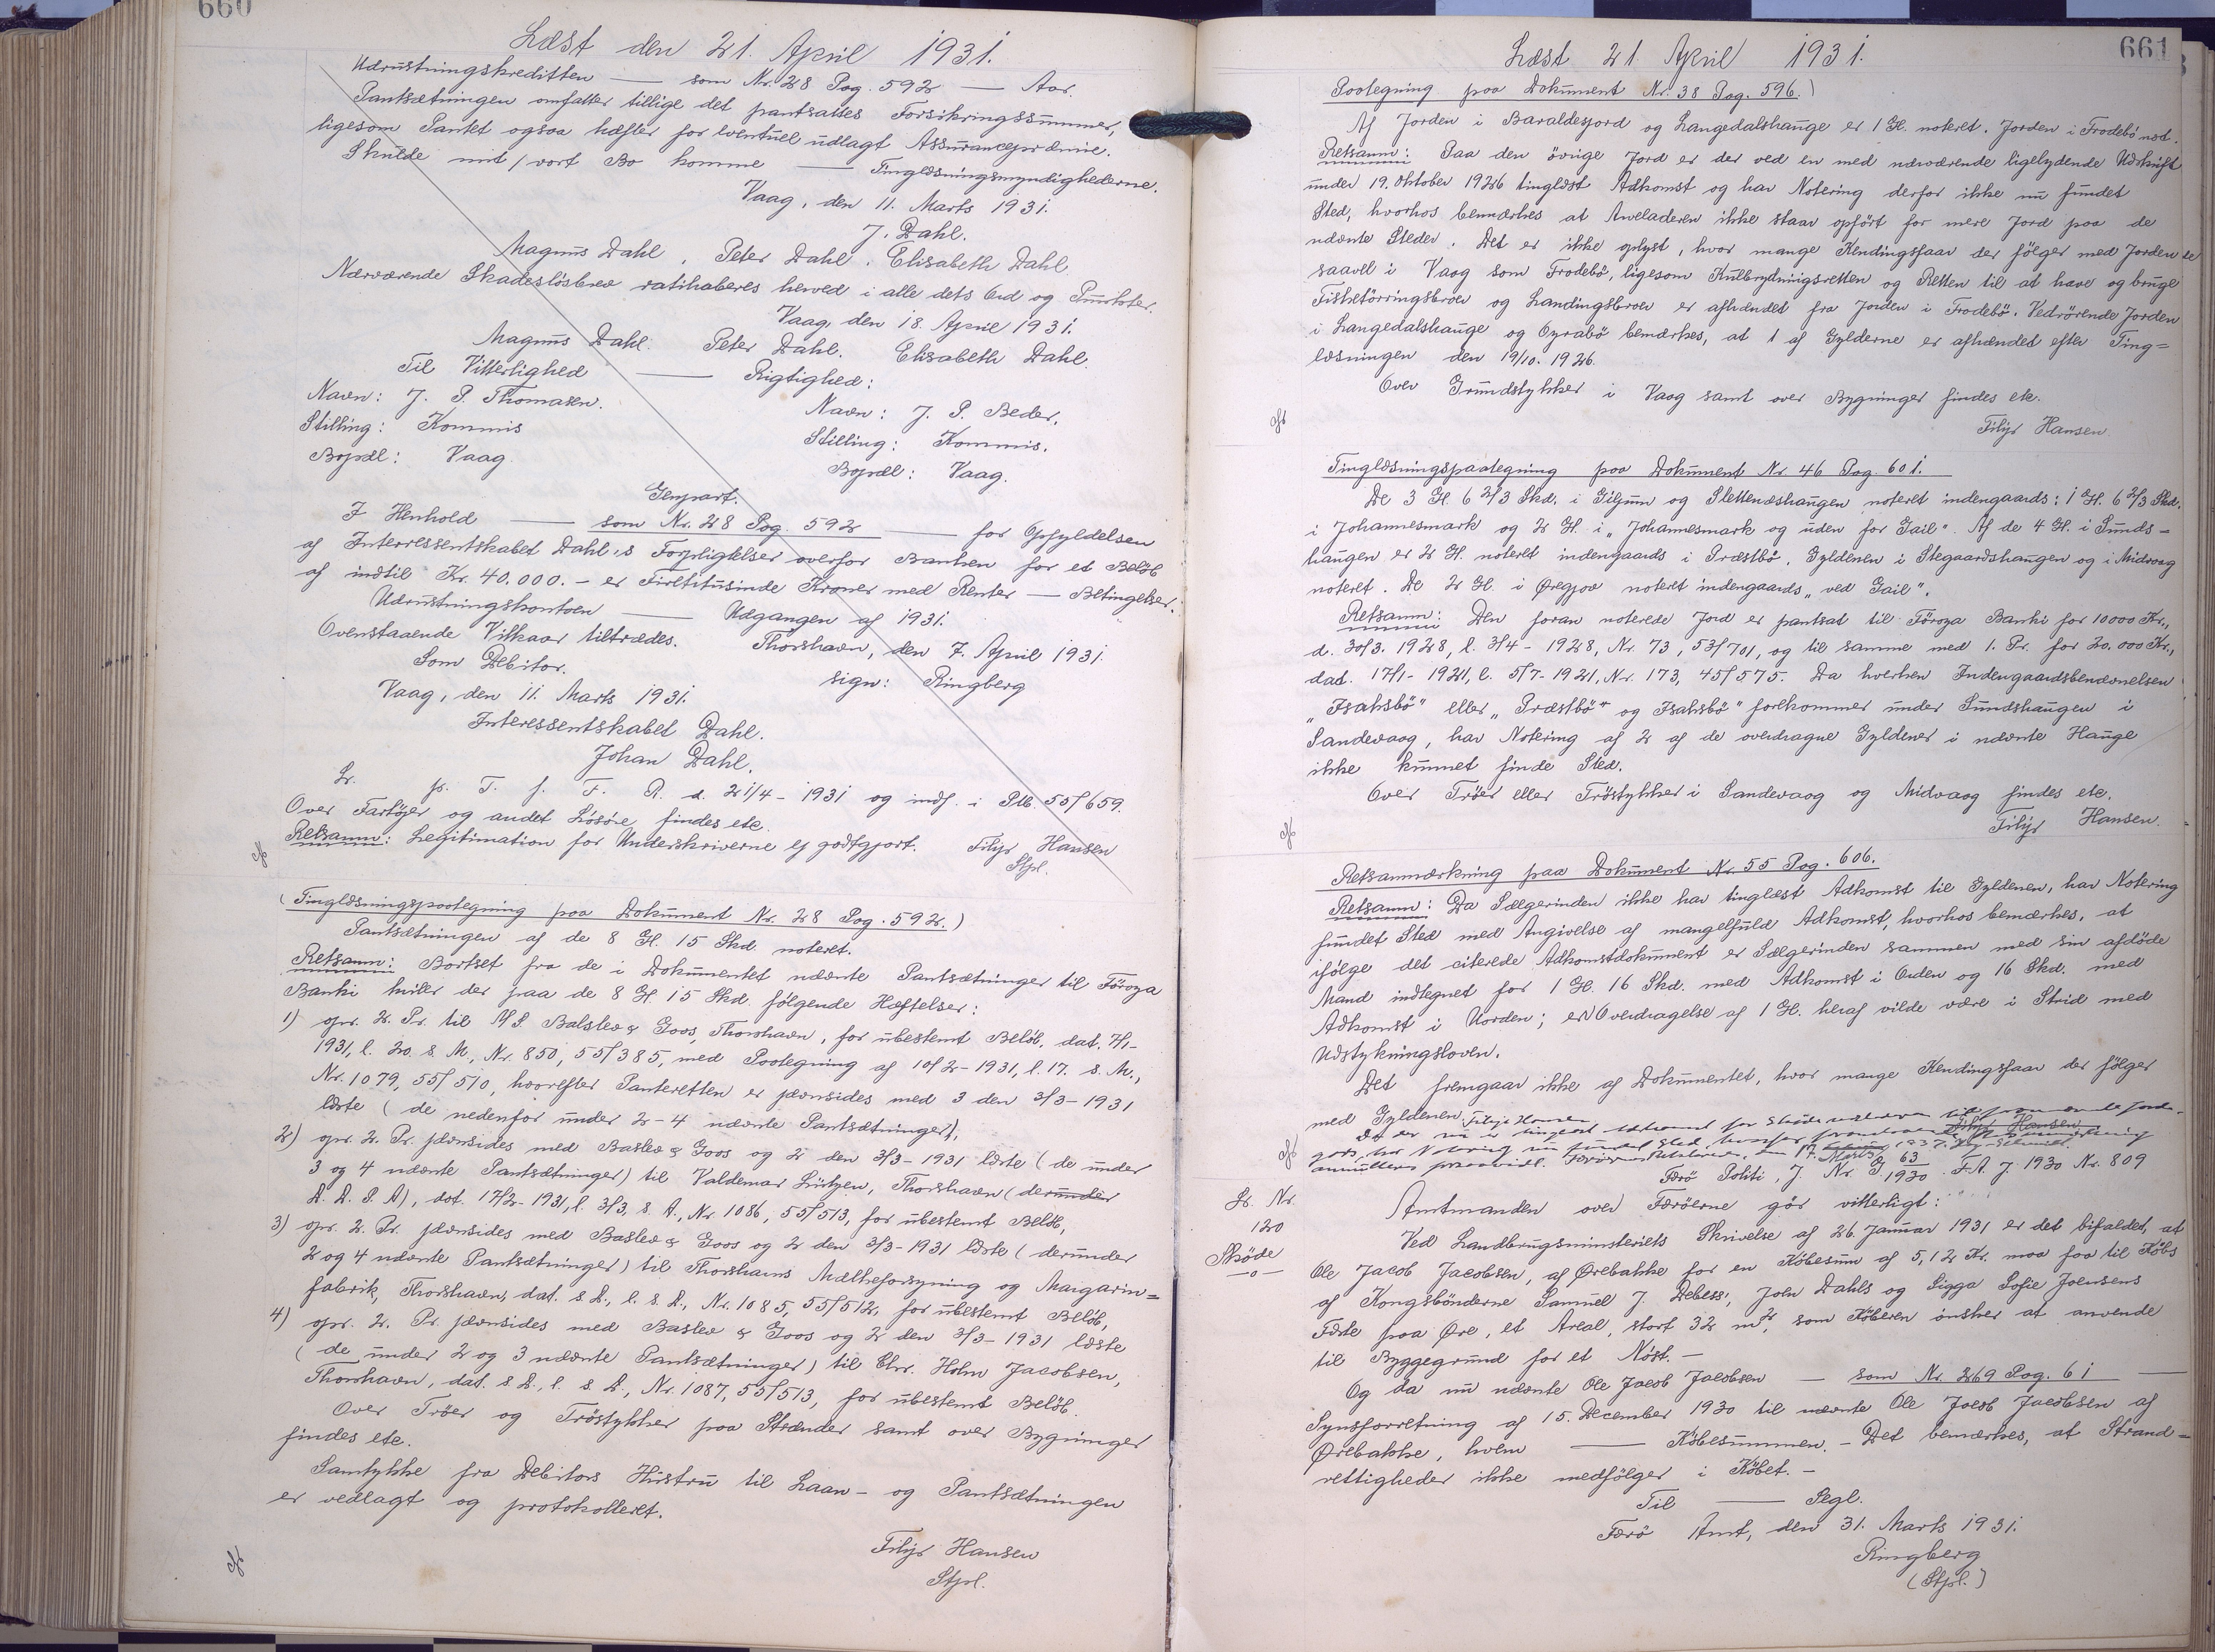 660
Læst den 21. April 1931.
Udrustningskreditten — som Nr. 28 Pag. 592 — Aar.
Pantsætningen omfatter tillige det pantsattes Forsikringssummer,
ligesom Pantet ogsaa hæfter for eventuel udlagt Assurancepræmie.
Skulde mit/vort Bo komme — Tinglæsningsmyndighederne.
Vaag, den 11. Marts 1931.
J. Dahl.
Magnus Dahl. Peter Dahl. Elisabeth Dahl.
Nærværende Skadesløsbrev ratihaberes herved i alle dets Ord og Punkter.
Vaag, den 18. April 1931.
Magnus Dahl. Peter Dahl. Elisabeth Dahl.
Til Vitterlighed — Rigtighed:
Navn: J. P. Thomasen. Navn: J. P. Beder.
Stilling: Kommis Stilling: Kommis.
Bopæl: Vaag. Bopæl: Vaag.
Genpart.
I Henhold — som Nr. 28 Pag. 592 — for Opfyldelsen
af Interressentskabet Dahl's Forpligtelser overfor Banken for et Beløb
af indtil Kr. 40.000.- er Firetitusinde Kroner med Renter — Betingelser.
Udrustningskontoen — Udgangen af 1931.
Ovenstaaende Vilkaar tiltrædes. Thorshavn, den 7. April 1931.
Som Debitor. sign: Ringberg
Vaag, den 11. Marts 1931.
Interessentskabet Dahl.
Johan Dahl.
Lr. p. T. f. F. R. d. 21/4-1931 og indf. i Ptb 55/659.
Over Fartøjer og andet Løsøre findes etc.
Retsanm: Legitimation for Underskriverne ej godtgjort. Filip Hansen
Stpl.
(Tinglæsningspaategning paa Dokument Nr. 28 Pag. 592.)
Pantsætningen af de 8 Gl. 15 Skd noteret.
Retsanm: Bortset fra de i Dokumentet nævnte Pantsætninger til Föroya
Banki hviler der paa de 8 Gl 15 Skd. følgende Hæftelser:
1) opr. 2. Pr. til A/S. Balslev & Goos, Thorshavn, for ubestemt Beløb, dat. 7/1-
1931, l. 20. s. M., Nr. 850, 55/385, med Paategning af 10/2-1931, l. 17. s. M.,
Nr. 1079, 55/510, hvorefter Panteretten er jævnsides med 3 den 3/3-1931
læste (de nedenfor under 2-4 nævnte Pantsætninger),
2) opr. 2. Pr. jævnsides med Baslev & Goos og 2 den 3/3-1931 læste (de under
3 og 4 nævnte Pantsætninger) til Valdemar Lützen, Thorshavn (derunder
A. A. S. A), dat. 17/2-1931, l. 3/3, s. A., Nr. 1086, 55/513, for ubestemt Beløb,
3) opr. 2. Pr. jævnsides med Baslev & Goos og 2 den 3/3-1931 læste (derunder
2 og 4 nævnte Pantsætninger) til Thorshavns Mælkeforsyning og Margarin=
fabrik, Thorshavn, dat. s. D., l. s. D., Nr. 1085, 55/512, for ubestemt Beløb,
4) opr. 2. Pr. jævnsides med Baslev & Goos og 2 den 3/3-1931 læste
(de under 2 og 3 nævnte Pantsætninger) til Chr. Holm Jacobsen,
Thorshavn, dat. s. D., l. s. D., Nr. 1087, 55/513, for ubestemt Beløb.
Over Trøer og Trøstykker paa Strænder samt over Bygninger
findes etc.
Samtykke fra Debitors Hustru til Laan- og Pantsætningen
er vedlagt og protokolleret.
Filip Hansen
Stpl.
661
Læst 21. April 1931.
Paategning paa Dokument Nr. 38 Pag. 596.)
Af Jorden i Baraldesjord og Langedalshauge er 1 Gl. noteret. Jorden i Frodebö not.
Retsanm: Paa den övrige Jord er der ved en med nærværende ligelydende Udskrift
under 19. Oktober 1926 tinglæst Adkomst og har Notering derfor ikke nu fundet
Sted, hvorhos bemærkes at Avladeren ikke staar opført for mere Jord paa de
nævnte Steder. Det er ikke oplyst, hvor mange Kendingsfaar der følger med Jorden
saavel i Vaag som Frodebö, ligesom Kulbrydningsretten og Retten til at have og bruge
Fisketörringsbroen og Landingsbroen er afhændet fra Jorden i Frodebö. Vedrörende Jorden
i Langedalshauge og Oyrabö bemærkes, at 1 af Gylderne er afhændet efter Ting=
læsningen den 19/10. 1926.
Over Grundstykker i Vaag samt over Bygninger findes etc.
Filip Hansen.
Tinglæsningspaategning paa Dokument Nr. 46 Pag. 601.
De 3 Gl. 6 2/3 Skd. i Giljum og Slettenæshaugen noteret indengaards: 1 Gl. 6 2/3 Skd.
i Johannesmark og 2 Gl. i "Johannesmark og uden for Gail". Af de 4 Gl. i Sunds=
haugen er 2 Gl. noteret indengaards i Præstbö. Gyldenen i Stegaardshaugen og i Midvaag
noteret. De 2 Gl. i Ørgjov noteret indengaards "ved Gail".
Retsanm: Den foran noterede Jord er pantsat til Föroya Banki for 10000 Kr.,
d. 30/3. 1928, l. 3/4-1928, Nr. 73, 53/701, og til samme med 1. Pr. for 20.000 Kr.,
dat. 17/1-1921, l. 5/7-1921, Nr. 173, 45/575. Da hverken Indengaardsbenævnelsen
"Isaksbö" eller "Præstbö" og Isaksbö" forekommer under Sundshaugen i
Sandevaag, har Notering af 2 af de overdragne Gyldener i nævnte Hauge
ikke kunnet finde Sted.
Over Trøer eller Trøstykker i Sandevaag og Midvaag findes etc.
Filip Hansen.
Retsanmærkning paa Dokument Nr. 55 Pag. 606.
Retsanm: Da Sælgerinden ikke har tinglæst Adkomst til Gyldenen, har Notering
fundet Sted med Angivelse af mangelfuld Adkomst, hvorhos bemærkes, at
ifølge det citerede Adkomstdokument er Sælgerinden sammen med sin afdöde
Mand indtegnet for 1 Gl. 16 Skd. med Adkomst i Orden og 16 Skd. med
Adkomst i Uorden; en Overdragelse af 1 Gl. heraf vilde være i Strid med
Udstykningsloven.
Det fremgaar ikke af Dokumentet, hvor mange Kendingsfaar der følger
med Gyldenen. Filip Hansen
Filip Hansen
Færö Politi, J. Nr. G 63/1930. F.A. J. 1930 Nr. 809
Lr. Nr.
120
Sköde
—o—
Amtmanden over Færöerne gör vitterligt:
Ved Landbrugsministeriets Skrivelse af 26. Januar 1931 er det bifaldet, at
Ole Jacob Jacobsen, af Ørebakke for en Købesum af 5,12 Kr. maa faa til Købs
af Kongsbönderne Samuel J. Debess', Joen Dahls og Sigga Sofie Joensens
Fæste paa Øre, et Areal, stort 32 m², som Køberen ønsker at anvende
til Byggegrund for et Nöst.-
Og da nu nævnte Ole Jacob Jacobsen — som Nr. 269 Pag. 61 —
Synsforretning af 15. December 1930 til nævnte Ole Jacob Jacobsen af
Ørebakke, hvem — Købesummen. - Det bemærkes, at Strand=
rettigheder ikke medfølger i Købet. -
Til — Segl.
Færö Amt, den 31. Marts 1931.
Ringberg
(Stpl.)